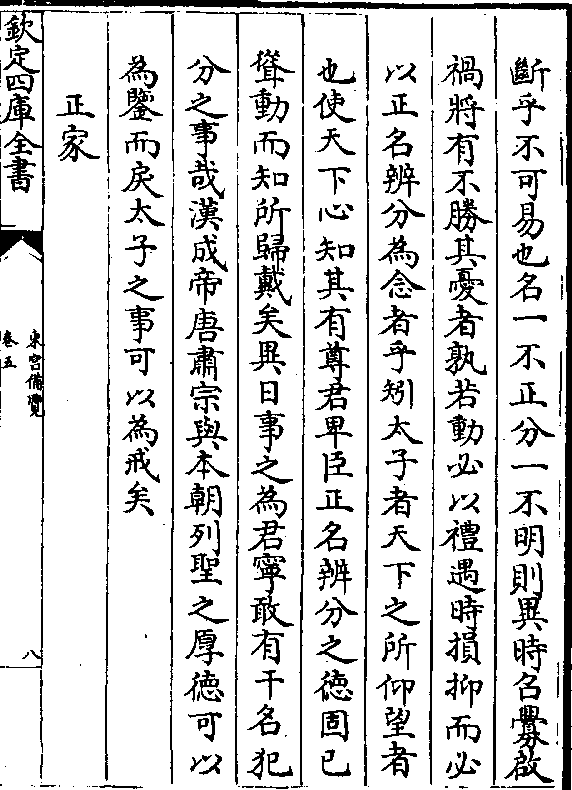 斷乎不可易也名一不正分一不明則異時召釁啟
禍將有不勝其憂者孰若動必以禮遇時損抑而必
以正名辨分為念者乎矧太子者天下之所仰望者
也使天下心知其有尊君卑臣正名辨分之徳固已
聳動而知所歸戴矣異日事之為君寧敢有干名犯
分之事哉漢成帝唐肅宗與本朝列聖之厚徳可以
為鑒而戾太子之事可以為戒矣
正家
欽定四庫全書
東宮備覽
卷五
八